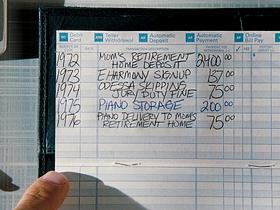 DC Debit Card AT Teller Withdrawal AD Automatic Deposit AP Automatic Payment Online Bill Pay
DATE TRANSACTION DESCRIPTION
1972 MOM'S RETIREMENT HOME DEPOSIT 2400 00
1973 EHARMONY SIGNUP 137 00
1974 ODESSA SKIPPING JURY DUTY FINE 75 00
1975 PIANO STORAGE 200 00
1976 PIANO DELIVERY TO MOM'S RETIREMENT HOME 75 00